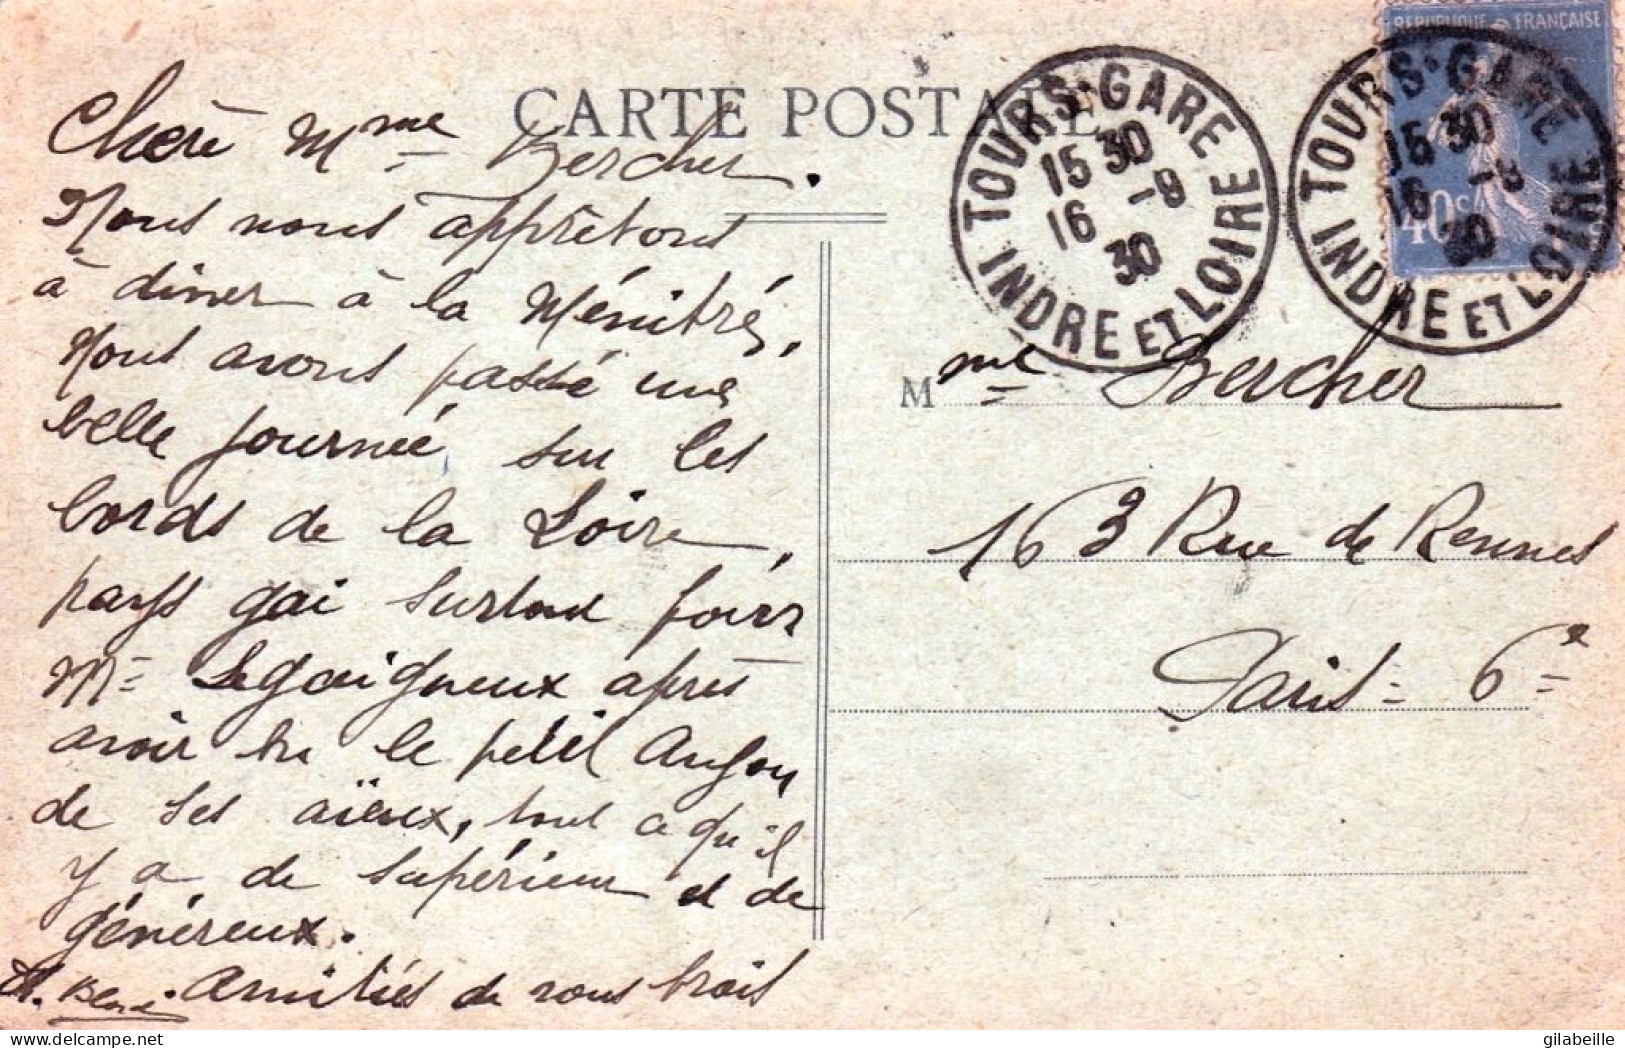 CARTE POSTALE
Chère Mme Bercher.
Nous nous apprêtons
à diner à la Ménitré,
Nous avons passé une
belle journée sur les
bords de la Loire,
pays gai surtout pour
Mr Legaigneux après
avoir bu le petit Anjou
de ses aïeux, tout ce qu'il
y a de supérieur et de
généreux.
Amitiés de nous trois
TOURS-GARE
15 30
16 -9
30
INDRE ET LOIRE
REPUBLIQUE FRANÇAISE
40c
TOURS-GARE
15 30
16 -9
30
INDRE ET LOIRE
Mme Bercher
163 Rue de Rennes
Paris - 6e
gilabeille